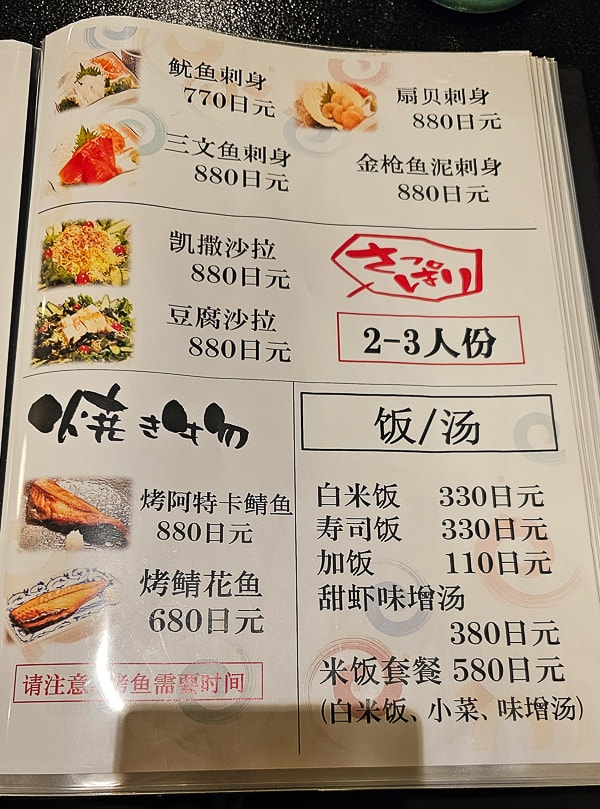 鱿鱼刺身
770日元
扇贝刺身
880日元
三文鱼刺身
880日元
金枪鱼泥刺身
880日元
凯撒沙拉
880日元
豆腐沙拉
880日元
さっぱり
2-3人份
焼き物
烤阿特卡鲭鱼
880日元
烤鲭花鱼
680日元
请注意 烤鱼需要时间
饭/汤
白米饭 330日元
寿司饭 330日元
加饭 110日元
甜虾味增汤
380日元
米饭套餐 580日元
(白米饭、小菜、味增汤)